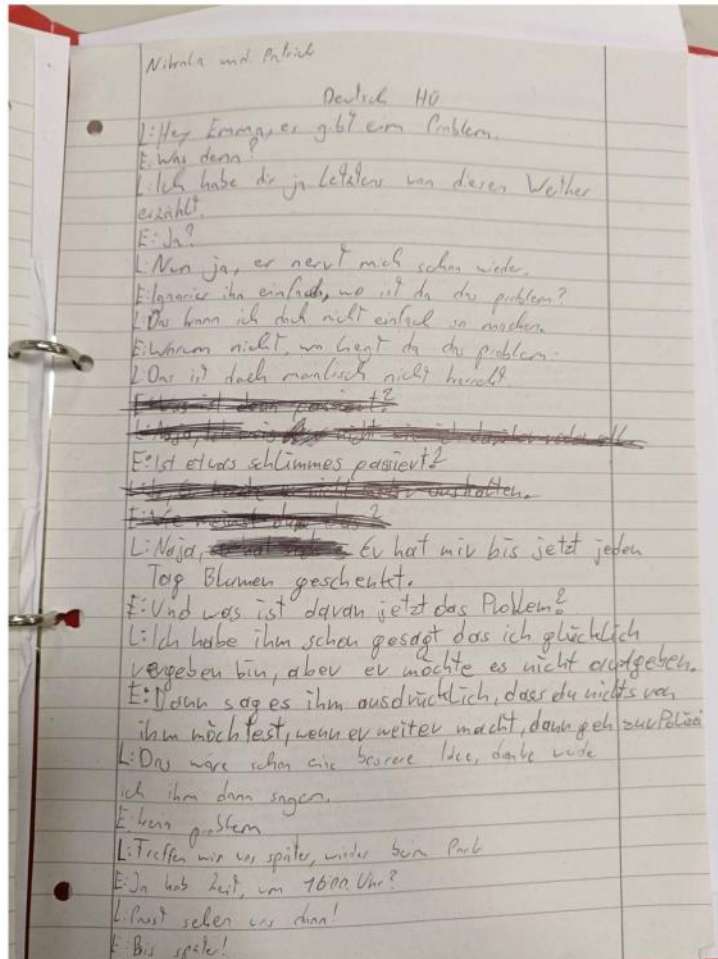 Nikola und Patrick
Deutsch HÜ
L: Hey Emma, es gibt ein Problem.
E: Was denn?
L: Ich habe dir ja letztens von diesen Werther
erzählt.
E: Ja?
L: Nun ja, er nervt mich schon wieder.
E: Ignorier ihn einfach, wo ist da das problem?
L: Das kann ich doch nicht einfach so machen.
E: Warum nicht, wo liegt da das problem.
L: Das ist doch moralisch nicht
E: Ist etwas schlimmes passiert?
L: Naja, Er hat mir bis jetzt jeden
Tag Blumen geschenkt.
E: Und was ist davan jetzt das Problem?
L: Ich habe ihm schon gesagt das ich glücklich
vergeben bin, aber er möchte es nicht aufgeben.
E: Dann sag es ihm ausdrücklich, dass du nichts von
ihm möchtest, wenn er weiter macht, dann geh zur Polizei
L: Das wäre schon eine bessere Idee, danke
ich ihm dann sagen.
E: kein problem
L: Treffen wir uns später, wieder beim Park
E: Ja hab Zeit, um 16:00 Uhr?
L: Passt sehen uns dann!
E: Bis später!